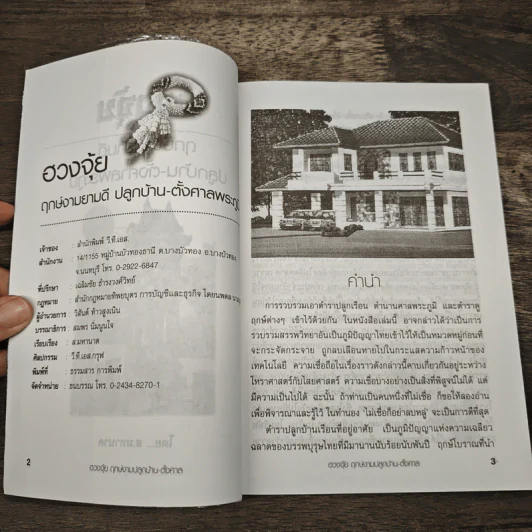 ฮวงจุ้ย
ฤกษ์งามยามดี ปลูกบ้าน-ตั้งศาลพระภูมิ
เจ้าของ : สำนักพิมพ์ วี.ที.เอส.
สำนักงาน : 14/1155 หมู่บ้านบัวทองธานี ต.บางบัวทอง อ.บางบัวทอง
จ.นนทบุรี โทร. 0-2922-6847
ที่ปรึกษา : เฉลิมชัย ธำรงวงศ์วิทย์
กฎหมาย : สำนักกฎหมายทิพยบุตร การบัญชีและธุรกิจ โดยนพดล
ผู้อำนวยการ : วิสันต์ ท้าวสูงเนิน
บรรณาธิการ : สมพร นิ่มนูนใจ
เรียบเรียง : ส.มหานาค
ศิลปกรรม : วี.ที.เอส.กรุ๊ฟ
พิมพ์ที่ : ธรรมสาร การพิมพ์
จัดจำหน่าย : ธนบรรณ โทร. 0-2434-8270-1
2
ฮวงจุ้ย ฤกษ์งามปลูกบ้าน-ตั้งศาล
คำนำ
การรวบรวมเอาตำราปลูกเรือน ตำนานศาลพระภูมิ และตำราดู
ฤกษ์ต่างๆ เข้าไว้ด้วยกัน ในหนังสือเล่มนี้ อาจกล่าวได้ว่าเป็นการ
รวบรวมสรรพวิทยาอันเป็นภูมิปัญญาไทยเข้าไว้ให้เป็นหมวดหมู่ก่อนที่
จะกระจัดกระจาย ถูกลบเลือนหายไปในกระแสความก้าวหน้าของ
เทคโนโลยี ความเชื่อถือในเรื่องราวดังกล่าวนี้คาบเกี่ยวกันอยู่ระหว่าง
โหราศาสตร์กับไสยศาสตร์ ความเชื่อบางอย่างเป็นสิ่งที่พิสูจน์ไม่ได้ แต่
มีความเป็นไปได้ ฉะนั้น ถ้าท่านเป็นคนหนึ่งที่ไม่เชื่อ ก็ขอให้ลองอ่าน
เพื่อพิจารณาและรู้ไว้ ในทำนอง 'ไม่เชื่อก็อย่าลบหลู่' จะเป็นการดีที่สุด
ตำราปลูกบ้านเรือนที่อยู่อาศัย เป็นภูมิปัญญาแห่งความเฉลียว
ฉลาดของบรรพบุรุษไทยที่มีมานานนับร้อยนับพันปี ฤกษ์โบราณที่นำ
ฮวงจุ้ย ฤกษ์งามปลูกบ้าน-ตั้งศาล
3